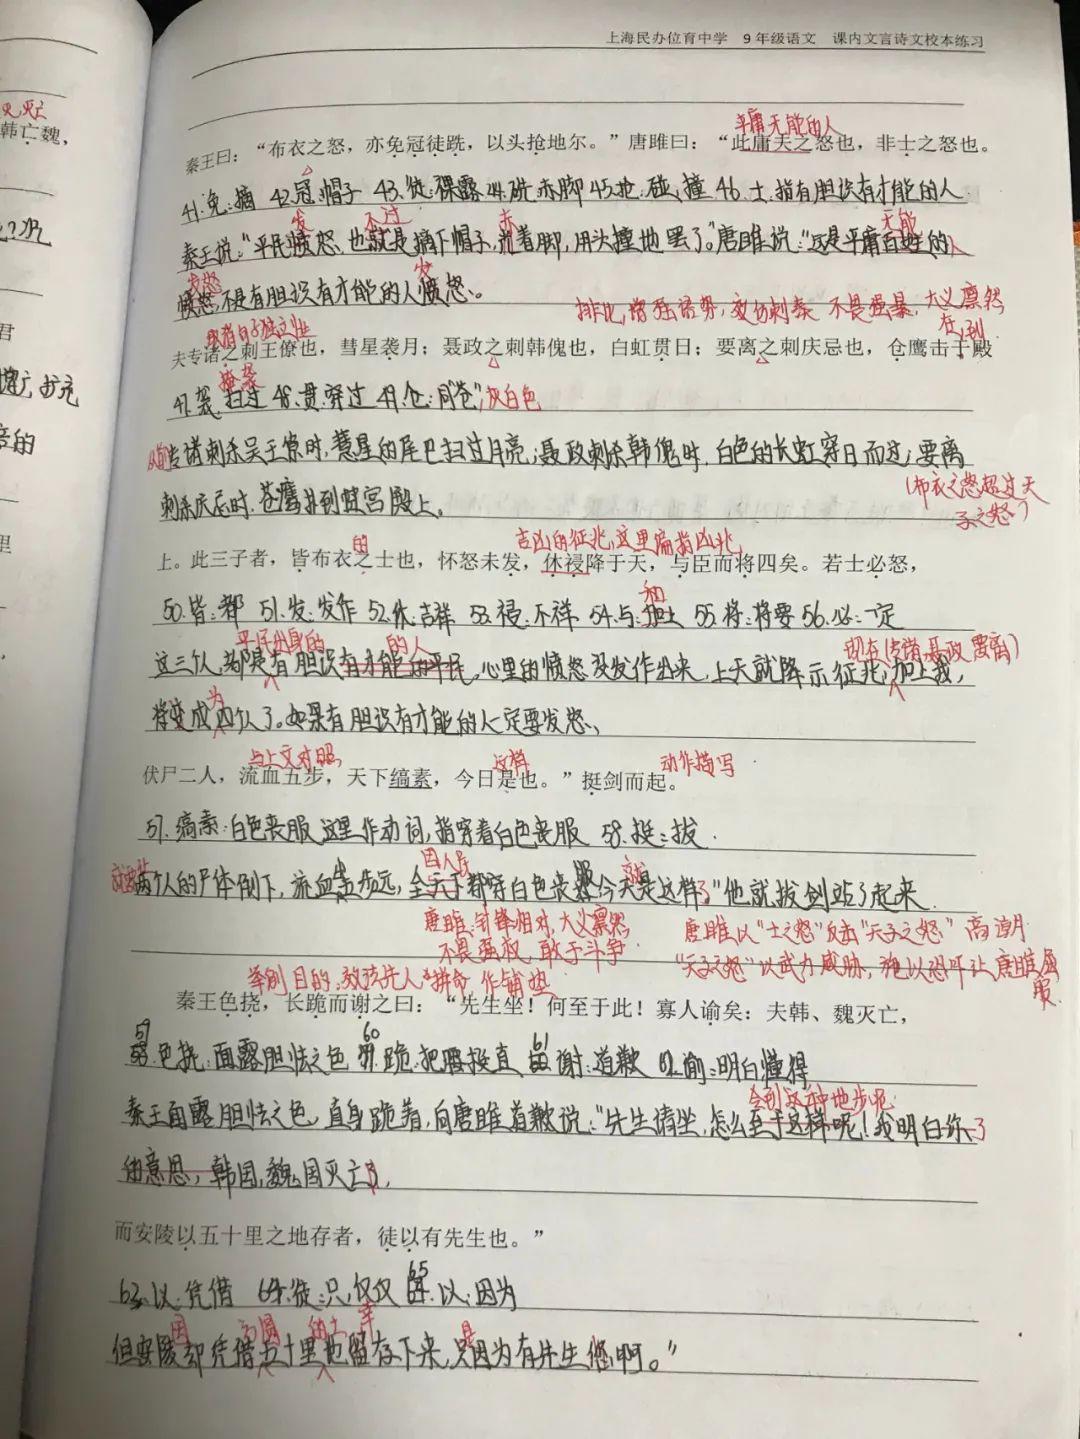 灭,灭亡
韩亡魏，
君
扩充
的
里
上海民办位育中学　9 年级语文　课内文言诗文校本练习
平庸无能的人
秦王曰：“布衣之怒，亦免冠徒跣，以头抢地尔。”唐雎曰：“此庸夫之怒也，非士之怒也。
41.免:摘 42.冠:帽子 43.徒:裸露 44.跣:赤脚 45.抢:碰,撞 46.士:指有胆识有才能的人
发 不过 赤 无能
秦王说:“平民愤怒,也就是摘下帽子,光着脚,用头撞地罢了。”唐雎说:“这是平庸百姓的人
发怒 发
愤怒,不是有胆识有才能的人愤怒。
排比,增强语势,效仿刺秦 不畏强暴,大义凛然
取消句子独立性 在,到
夫专诸之刺王僚也，彗星袭月；聂政之刺韩傀也，白虹贯日；要离之刺庆忌也，仓鹰击于殿
掩袭
47.袭:扫过 48.贯:穿过 49.仓:同“苍”,灰白色
从前专诸刺杀吴王僚时,慧星的尾巴扫过月亮;聂政刺杀韩傀时,白色的长虹穿日而过;要离
刺杀庆忌时,苍鹰扑到宫殿上。
(布衣之怒超过天
子之怒)
的 吉凶的征兆,这里偏指凶兆
上。此三子者，皆布衣之士也，怀怒未发，休祲降于天，与臣而将四矣。若士必怒，
和
50.皆:都 51.发:发作 52.休:吉祥 53.祲:不祥 54.与:加上 55.将:将要 56.必:一定
平民出身的 的人 现在(专诸,聂政,要离)
这三个人,都是有胆识有才能的平民,心里的愤怒没发作出来,上天就降示征兆,加上我,
为
将变成四个人了。如果有胆识有才能的人一定要发怒、
与上文对照 这样 动作描写
伏尸二人，流血五步，天下缟素，今日是也。”挺剑而起。
57.缟素:白色丧服,这里作动词,指穿着白色丧服 58.挺:拔
国人民 就
两个人的尸体倒下,流血五步远,全天下都穿白色丧服,今天是这样了”他就拔剑站了起来
唐雎:针锋相对,大义凛然
不畏强权,敢于斗争
唐雎以“士之怒”反击“天子之怒” 高潮
“天子之怒”以武力威胁,施以恐吓让唐雎屈
服
举例目的:效法先人“拼命”作铺垫
秦王色挠，长跪而谢之曰：“先生坐！何至于此！寡人谕矣：夫韩、魏灭亡，
59.色挠:面露胆怯之色 60.跪:把腰挺直 61.谢:道歉 62.谕:明白懂得
会到这种地步呢
秦王面露胆怯之色,直身跪着,向唐雎道歉说:“先生请坐,怎么至于这样呢!我明白你了
的意思,韩国,魏国灭亡了,
而安陵以五十里之地存者，徒以有先生也。”
63.以:凭借 64.徒:只,仅仅 65.以:因为
国 方圆 的土 幸 是
但安陵却凭借五十里地留存下来,只因为有先生您啊。”